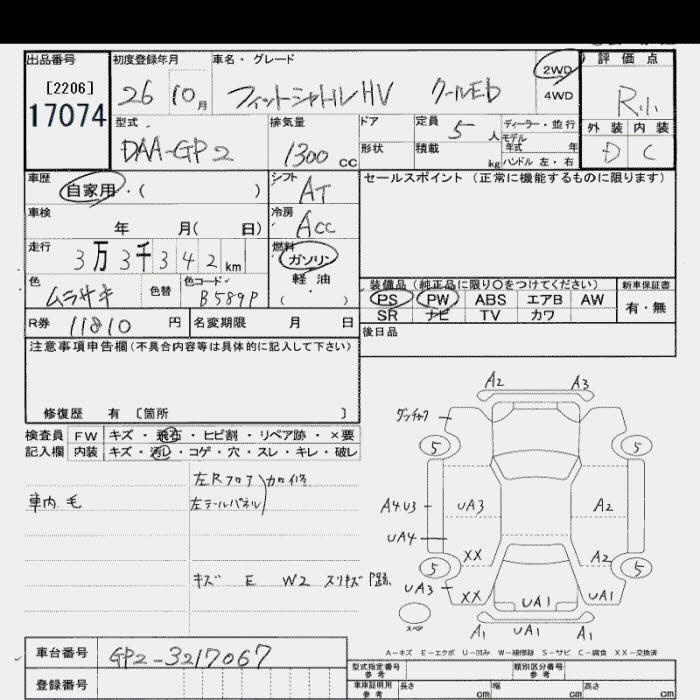 出品番号 初度登録年月 車名・グレード 2WD 評価点
[2206] 26 10月 フィットシャトルHV クールEd 4WD R小
17074 型式 排気量 ドア 定員 5人 ディーラー・並行 外装 内装
DAA-GP2 1300cc 形状 積載 kg モデル年式 年 D C
ハンドル 左・右
車歴 シフト セールスポイント(正常に機能するものに限ります)
自家用・( ) AT
車検 冷房
年 月( 日) Acc
走行 燃料
3万3千342km ガソリン
色 色替 色コード 軽油 装備品(純正品に限り○をつけてください) 新車保証書
ムラサキ B589P ( ) PS PW ABS エアB AW 有・無
SR ナビ TV カワ
R券 11810円 名変期限 月 日 後日品
注意事項申告欄(不具合内容等は具体的に記入して下さい)
修復歴 有 [箇所 ]
検査員 FW キズ・飛石・ヒビ割・リペア跡・×要
記入欄 内装 キズ・汚レ・コゲ・穴・スレ・キレ・破レ
車内 毛
左Rフロア
左テールパネル
加修
キズ E W2 スリキズ
A2 A3
5 5
A4U3 UA3 A2
UA4
XX A2
5 5
UA3 XX UA1 UA1
スペア A1 UA1 A1
A-キズ E-エクボ U-凹み W-補修跡 S-サビ C-腐食 XX-交換済
車台番号 GP2-3217067
型式指定番号 参考 類別区分番号 参考
登録番号 車庫証明用 参考 長さ cm 幅 cm 高さ cm